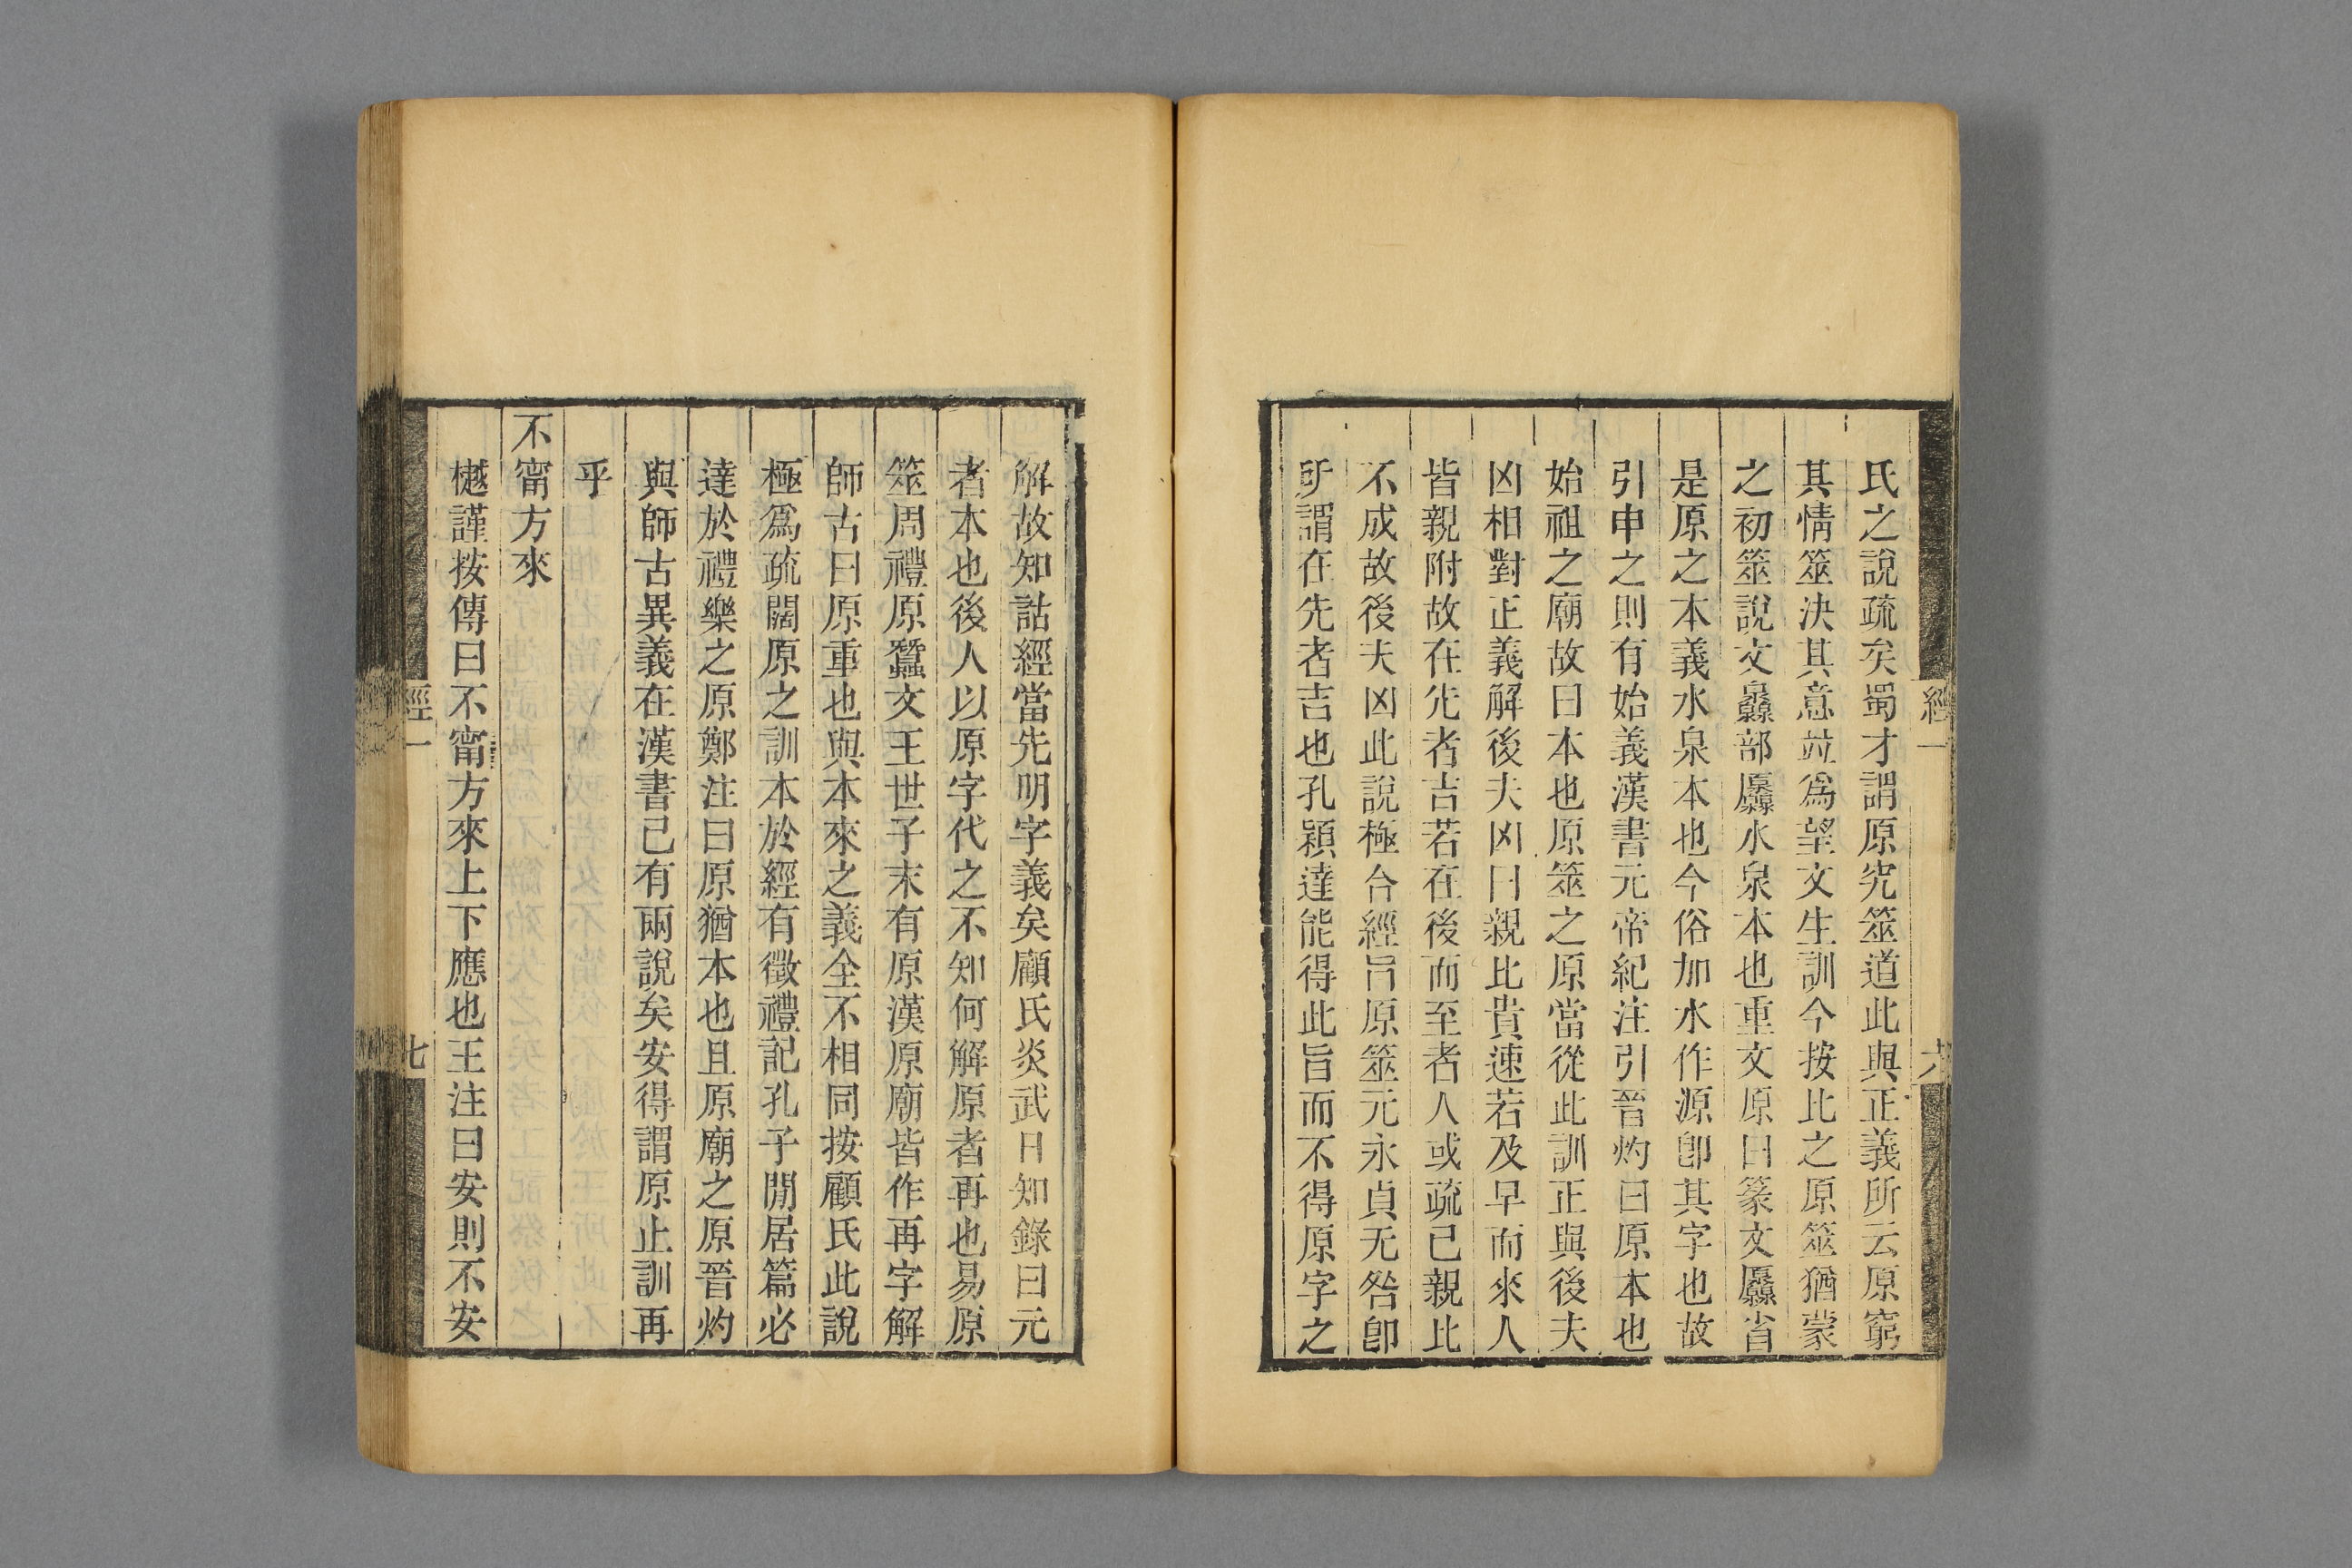 經一
六
氏之說疏矣蜀才謂原究筮道此與正義所云原窮
其情筮決其意竝爲望文生訓今按比之原筮猶蒙
之初筮說文灥部厵水泉本也重文原曰篆文厵省
是原之本義水泉本也今俗加水作源卽其字也故
引申之則有始義漢書元帝紀注引晉灼曰原本也
始祖之廟故曰本也原筮之原當從此訓正與後夫
凶相對正義解後夫凶曰親比貴速若及早而來人
皆親附故在先者吉若在後而至者人或疏己親比
不成故後夫凶此說極合經旨原筮元永貞无咎卽
所謂在先者吉也孔穎達能得此旨而不得原字之
解故知詁經當先明字義矣顧氏炎武日知錄曰元
者本也後人以原字代之不知何解原者再也易原
筮周禮原蠶文王世子末有原漢原廟皆作再字解
師古曰原重也與本來之義全不相同按顧氏此說
極爲疏闊原之訓本於經有徵禮記孔子閒居篇必
達於禮樂之原鄭注曰原猶本也且原廟之原晉灼
與師古異義在漢書己有兩說矣安得謂原止訓再
乎
不甯方來
樾謹按傳曰不甯方來上下應也王注曰安則不安
經一
七